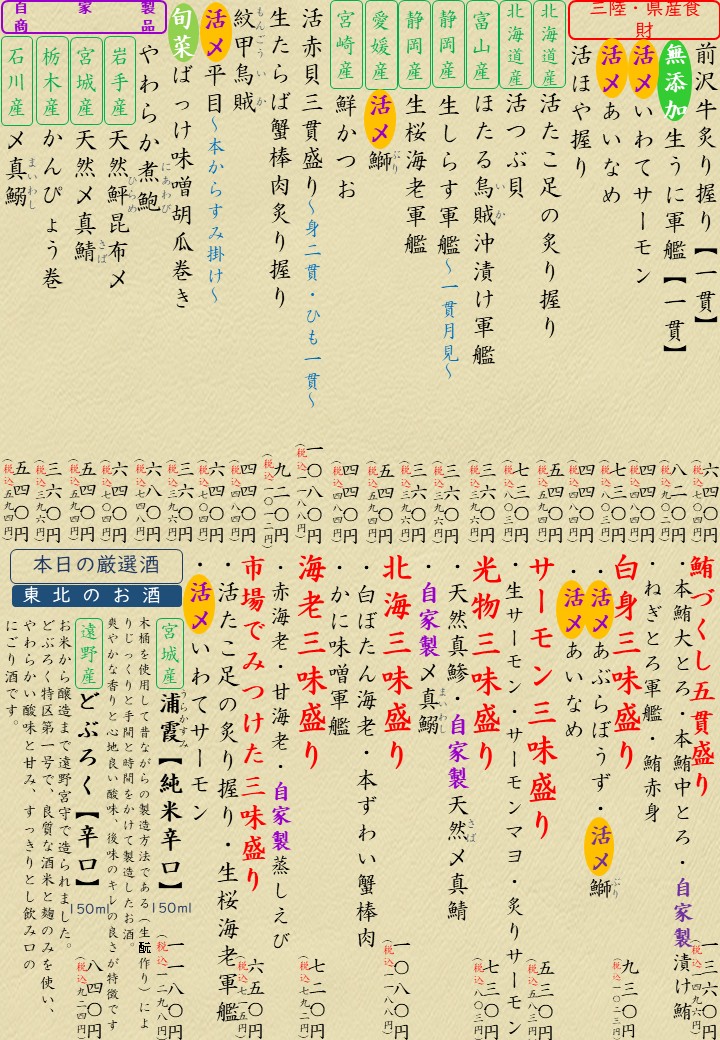 三陸・県産食財
前沢牛炙り握り【一貫】 六四〇円 (税込七〇四円)
無添加 生うに軍艦【一貫】 八二〇円 (税込九〇二円)
活〆 いわてサーモン 四四〇円 (税込四八四円)
活〆 あいなめ 七三〇円 (税込八〇三円)
活ほや握り 四四〇円 (税込四八四円)
北海道産 活たこ足の炙り握り 五四〇円 (税込五九四円)
北海道産 活つぶ貝 七三〇円 (税込八〇三円)
富山産 ほたる烏賊沖漬け軍艦 三六〇円 (税込三九六円)
静岡産 生しらす軍艦～一貫月見～ 三六〇円 (税込三九六円)
静岡産 生桜海老軍艦 三六〇円 (税込三九六円)
愛媛産 活〆 鰤 五四〇円 (税込五九四円)
宮崎産 鮮かつお 四四〇円 (税込四八四円)
活赤貝三貫盛り～身二貫・ひも一貫～ 一〇八〇円 (税込一一八八円)
生たらば蟹棒肉炙り握り 九二〇円 (税込一〇一二円)
紋甲烏賊 四四〇円 (税込四八四円)
活〆 平目～本からすみ掛け～ 六四〇円 (税込七〇四円)
旬菜 ばっけ味噌胡瓜巻き 三六〇円 (税込三九六円)
自家製商品
やわらか煮鮑 六八〇円 (税込七四八円)
岩手産 天然鮃昆布〆 六四〇円 (税込七〇四円)
宮城産 天然〆真鯖 五四〇円 (税込五九四円)
栃木産 かんぴょう巻 三六〇円 (税込三九六円)
石川産 〆真鰯 五四〇円 (税込五九四円)
鮪づくし五貫盛り 一三六〇円 (税込一四九六円)
・本鮪大とろ・本鮪中とろ・自家製漬け鮪
・ねぎとろ軍艦・鮪赤身
白身三味盛り 九三〇円 (税込一〇二三円)
・活〆あぶらぼうず・活〆鰤
・活〆あいなめ
サーモン三味盛り 五三〇円 (税込五八三円)
・生サーモン・サーモンマヨ・炙りサーモン
光物三味盛り 七三〇円 (税込八〇三円)
・天然真鯵・自家製天然〆真鯖
・自家製〆真鰯
北海三味盛り 一〇八〇円 (税込一一八八円)
・白ぼたん海老・本ずわい蟹棒肉
・かに味噌軍艦
海老三味盛り 七二〇円 (税込七九二円)
・赤海老・甘海老・自家製蒸しえび
市場でみつけた三味盛り 六五〇円 (税込七一五円)
・活たこ足の炙り握り・生桜海老軍艦
・活〆いわてサーモン
本日の厳選酒
東北のお酒
宮城産 浦霞【純米辛口】 150ml 一一八〇円 (税込一二九八円)
木桶を使用して昔ながらの製造方法である(生酛作り)によ
りじっくりと手間と時間をかけて製造したお酒。
爽やかな香りと心地良い酸味、後味のキレの良さが特徴です
遠野産 どぶろく【辛口】 150ml 八四〇円 (税込九二四円)
お米から醸造まで遠野宮守で造られました。
どぶろく特区第一号で、良質な酒米と麹のみを使い、
やわらかい酸味と甘み、すっきりとし飲み口の
にごり酒です。